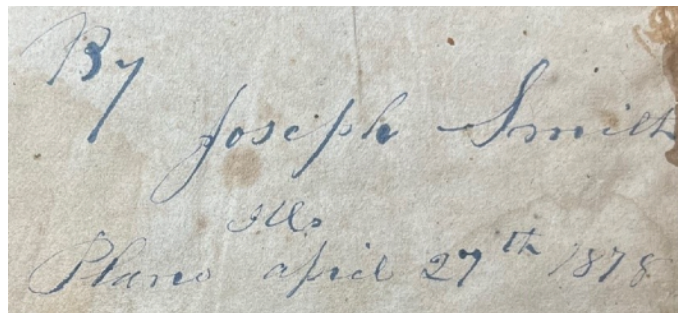 By
Joseph Smith
Ills
Plano april 27th 1878